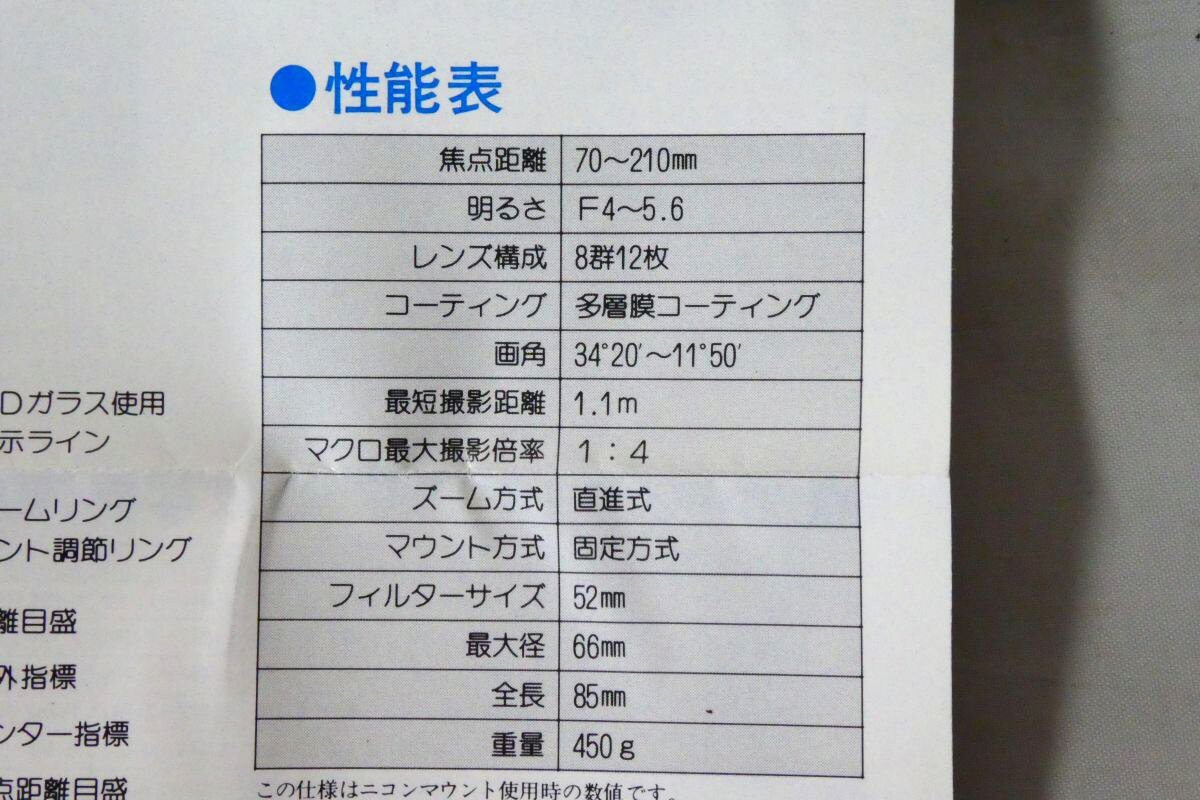 ●性能表
焦点距離 70～210㎜
明るさ F4～5.6
レンズ構成 8群12枚
コーティング 多層膜コーティング
画角 34°20′～11°50′
最短撮影距離 1.1m
マクロ最大撮影倍率 1：4
ズーム方式 直進式
マウント方式 固定方式
フィルターサイズ 52㎜
最大径 66㎜
全長 85㎜
重量 450g
この仕様はニコンマウント使用時の数値です。
Dガラス使用
示ライン
ームリング
ント調節リング
離目盛
外指標
ンター指標
点距離目盛